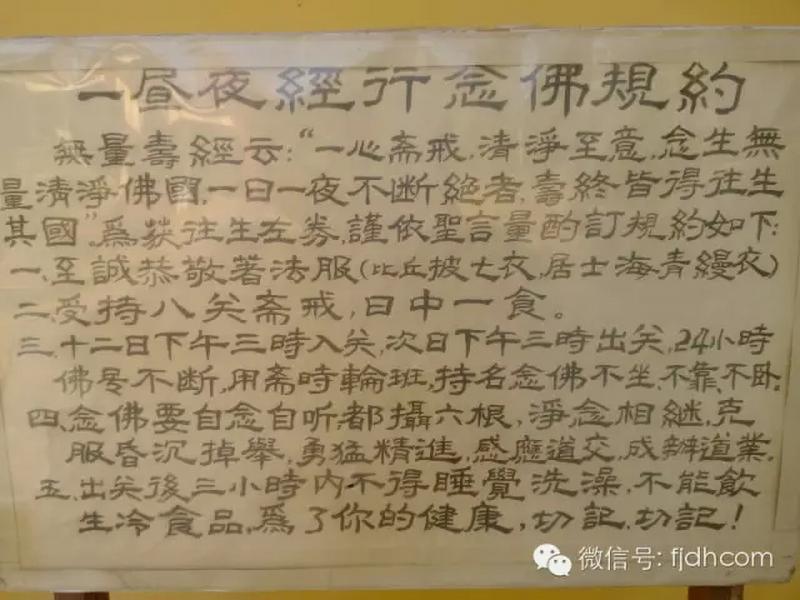 一昼夜經行念佛規約
無量壽經云：“一心斋戒，清淨至意，念生無
量清淨佛國，一日一夜不断絶者，壽終皆得往生
其國”。爲获往生左券，謹依聖言量酌訂規約如下：
一、至誠恭敬著法服（比丘披七衣，居士海青縵衣）
二、受持八关斋戒，日中一食。
三、十二日下午三時入关，次日下午三時出关，24小時
佛号不断，用斋時輪班，持名念佛不坐、不靠、不卧。
四、念佛要自念自听，都攝六根，淨念相継，克
服昏沉掉舉，勇猛精進，感應道交，成辦道業。
五、出关後三小時内不得睡覺洗澡，不能飲
生冷食品，爲了你的健康，切記，切記！
微信号: fjdhcom